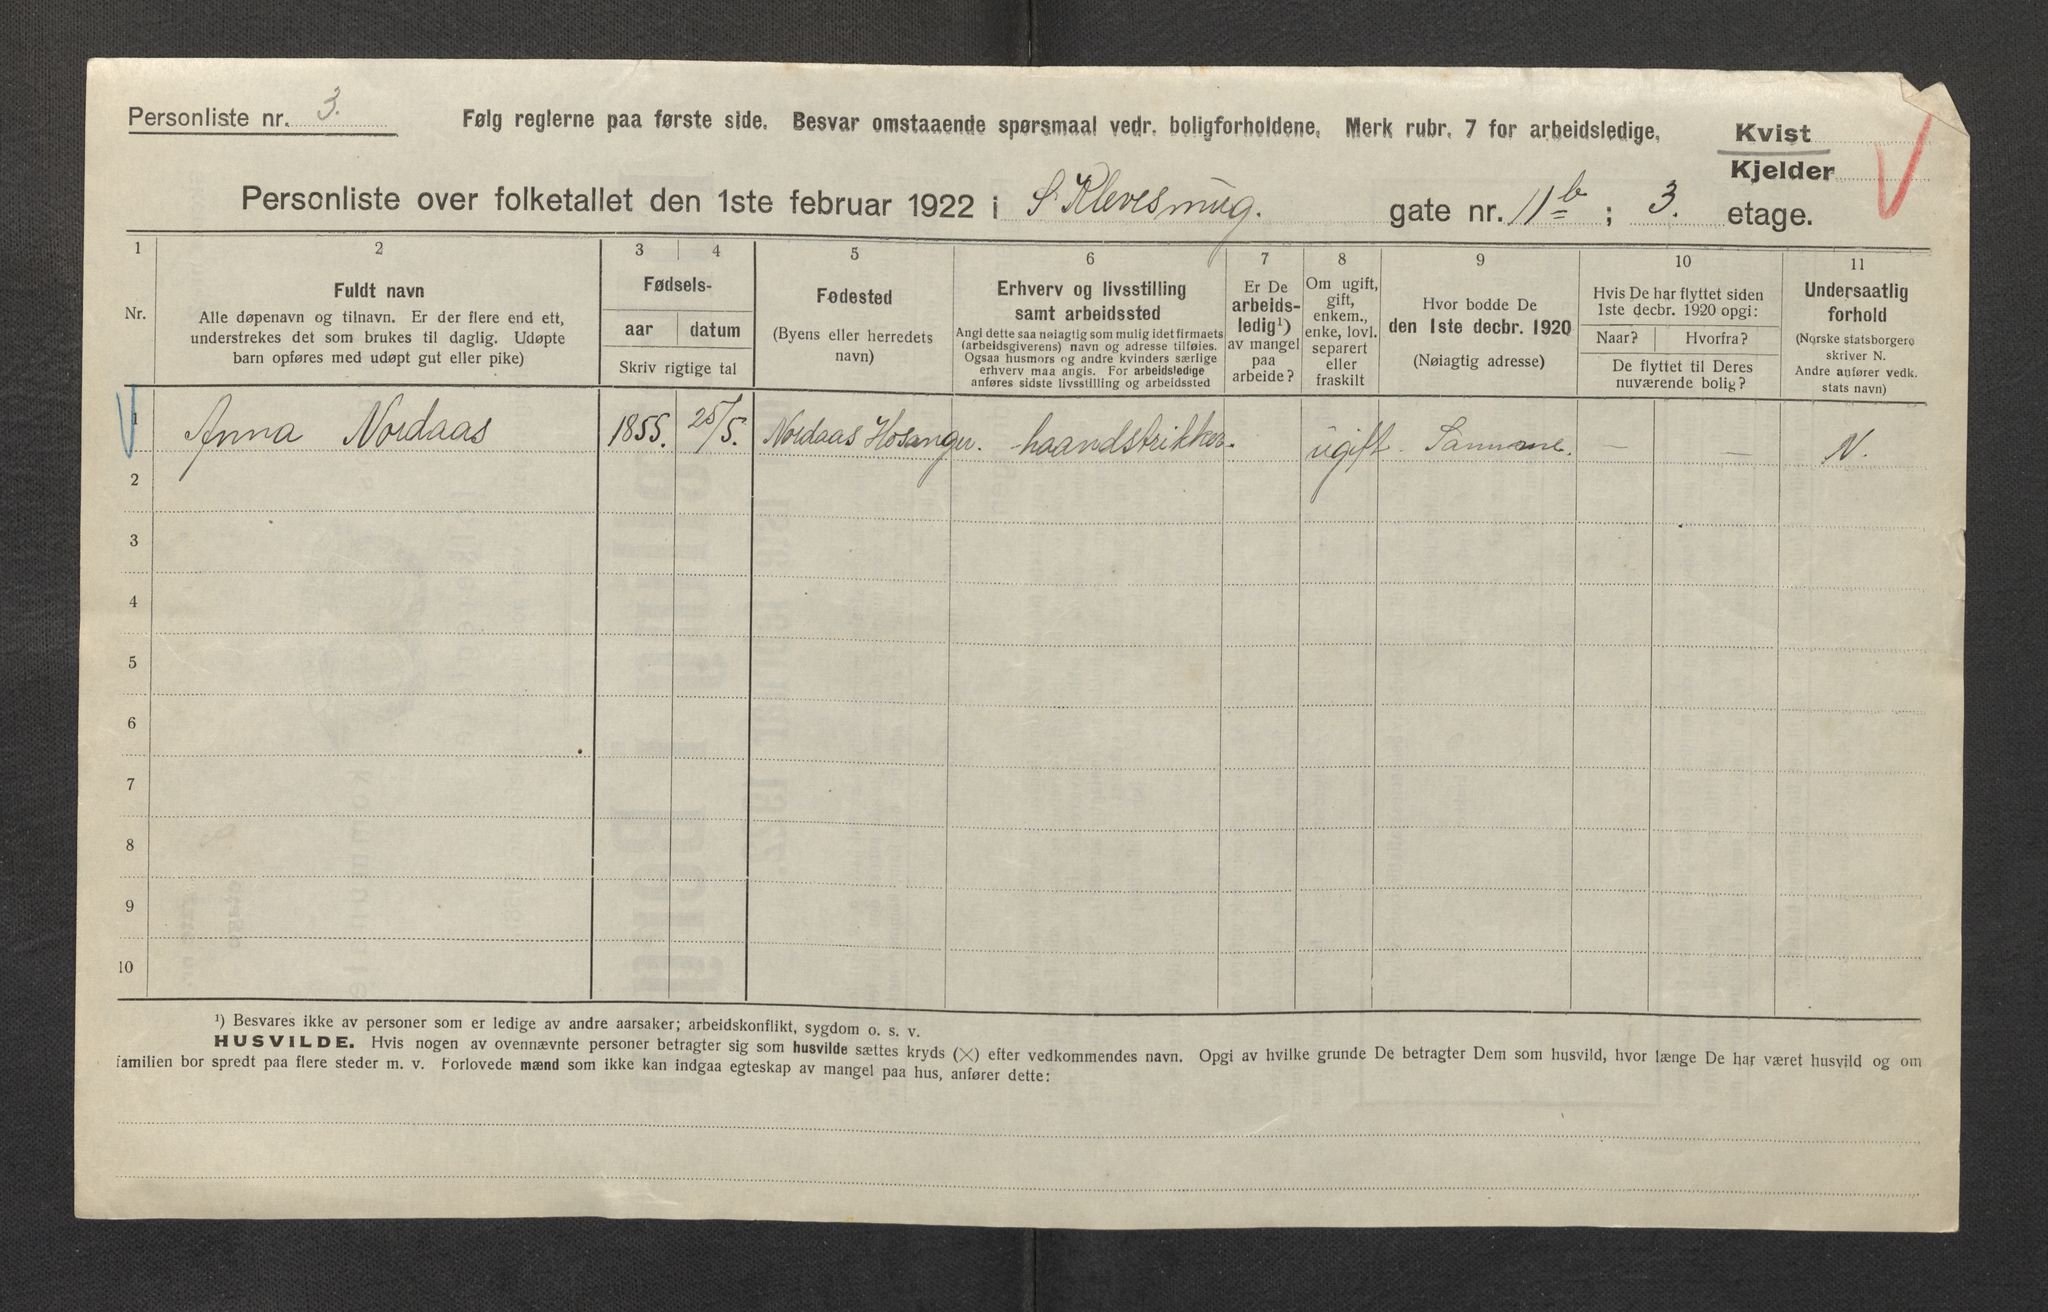 Personliste nr. 3.
Følg reglerne paa første side. Besvar omstaaende spørsmaal vedr. boligforholdene. Merk rubr. 7 for arbeidsledige.
Kvist
Kjelder
Personliste over folketallet den 1ste februar 1922 i S. Klevesmug. gate nr. 11b ; 3. etage.
1 2 3 4 5 6 7 8 9 10 11
Nr.
Fuldt navn
Alle døpenavn og tilnavn. Er der flere end ett,
understrekes det som brukes til daglig. Udøpte
barn opføres med udøpt gut eller pike)
Fødsels-
aar datum
Skriv rigtige tal
Fødested
(Byens eller herredets
navn)
Erhverv og livsstilling
samt arbeidssted
Angi dette saa nøiagtig som mulig idet firmaets
(arbeidsgiverens) navn og adresse tilføies.
Ogsaa husmors og andre kvinders særlige
erhverv maa angis. For arbeidsledige
anføres sidste livsstilling og arbeidssted
Er De
arbeids-
ledig¹)
av mangel
paa
arbeide?
Om ugift,
gift,
enkem.,
enke, lovl.
separert
eller
fraskilt
Hvor bodde De
den 1ste decbr. 1920
(Nøiagtig adresse)
Hvis De har flyttet siden
1ste decbr. 1920 opgi:
Naar? Hvorfra?
De flyttet til Deres
nuværende bolig?
Undersaatlig
forhold
(Norske statsborgere
skriver N.
Andre anfører vedk.
stats navn)
1 Anna Nordaas 1855. 25/5. Nordaas Hosanger. haandstrikker. ugift Samme. — — N.
2
3
4
5
6
7
8
9
10
¹) Besvares ikke av personer som er ledige av andre aarsaker; arbeidskonflikt, sygdom o. s. v.
HUSVILDE. Hvis nogen av ovennævnte personer betragter sig som husvilde sættes kryds (×) efter vedkommendes navn. Opgi av hvilke grunde De betragter Dem som husvild, hvor længe De har været husvild og om
familien bor spredt paa flere steder m. v. Forlovede mænd som ikke kan indgaa egteskap av mangel paa hus, anfører dette: